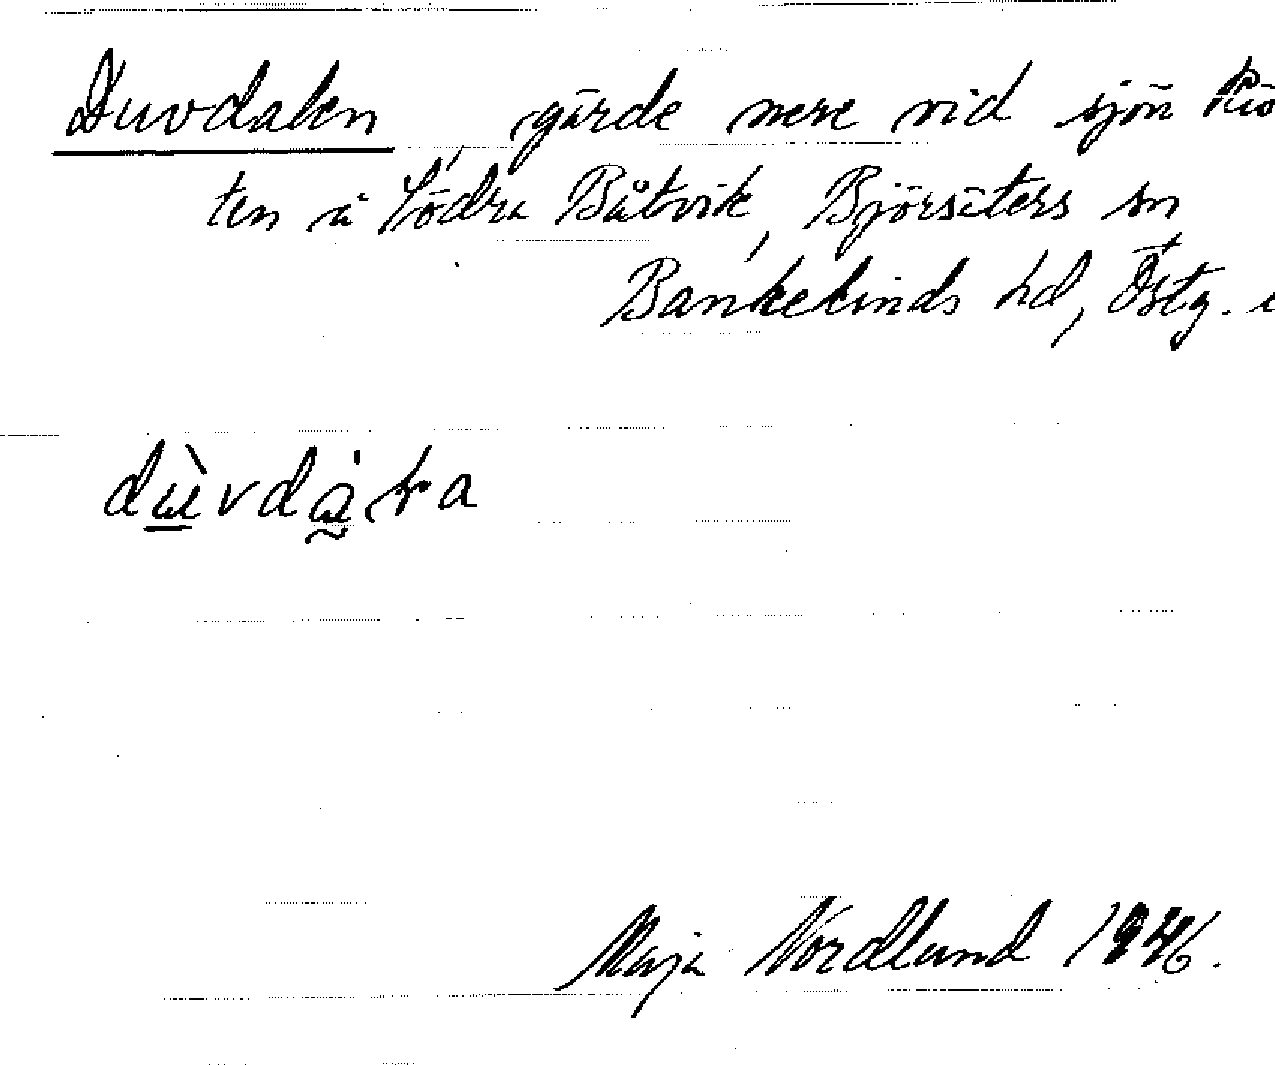 Duvdalen, gärde nere vid sjön Risö
ten å Södra Båtvik, Björsäters sn
Bankekinds hd, Östg.
Maja Nordlund 1946.